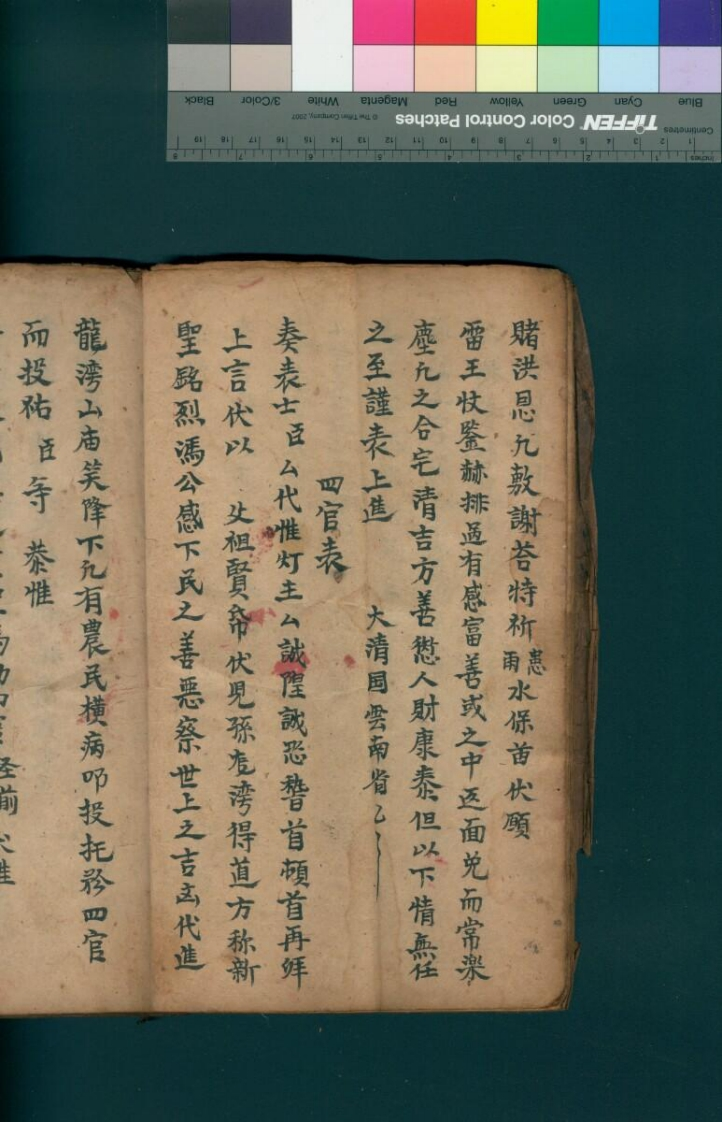 賭洪恩凢敷謝荅特祈 患雨 水保苗伏願
雷王牧鑒赫排過有感富善或之中返面免而常楽
塵凢之合宅清吉方善愆人財康泰但以下情無任
之至謹表上進 大清国雲南省乙
四官表
奏表士臣厶代惟灯主厶誠惶誠恐諬首頓首再拜
上言伏以 父祖賢 伏児孫 湾得道方称新
聖銘烈馮公感下民之善悪察世上之吉凶代進
龍湾山庙笑降下凢有農民横病叩投托於四官
而投祐臣等 恭惟
Blue Cyan Green Yellow Red Magenta White 3/Color Black
TIFFEN Color Control Patches © The Tiffen Company, 2007
Centimetres 1 2 3 4 5 6 7 8 9 10 11 12 13 14 15 16 17 18 19
Inches 1 2 3 4 5 6 7 8